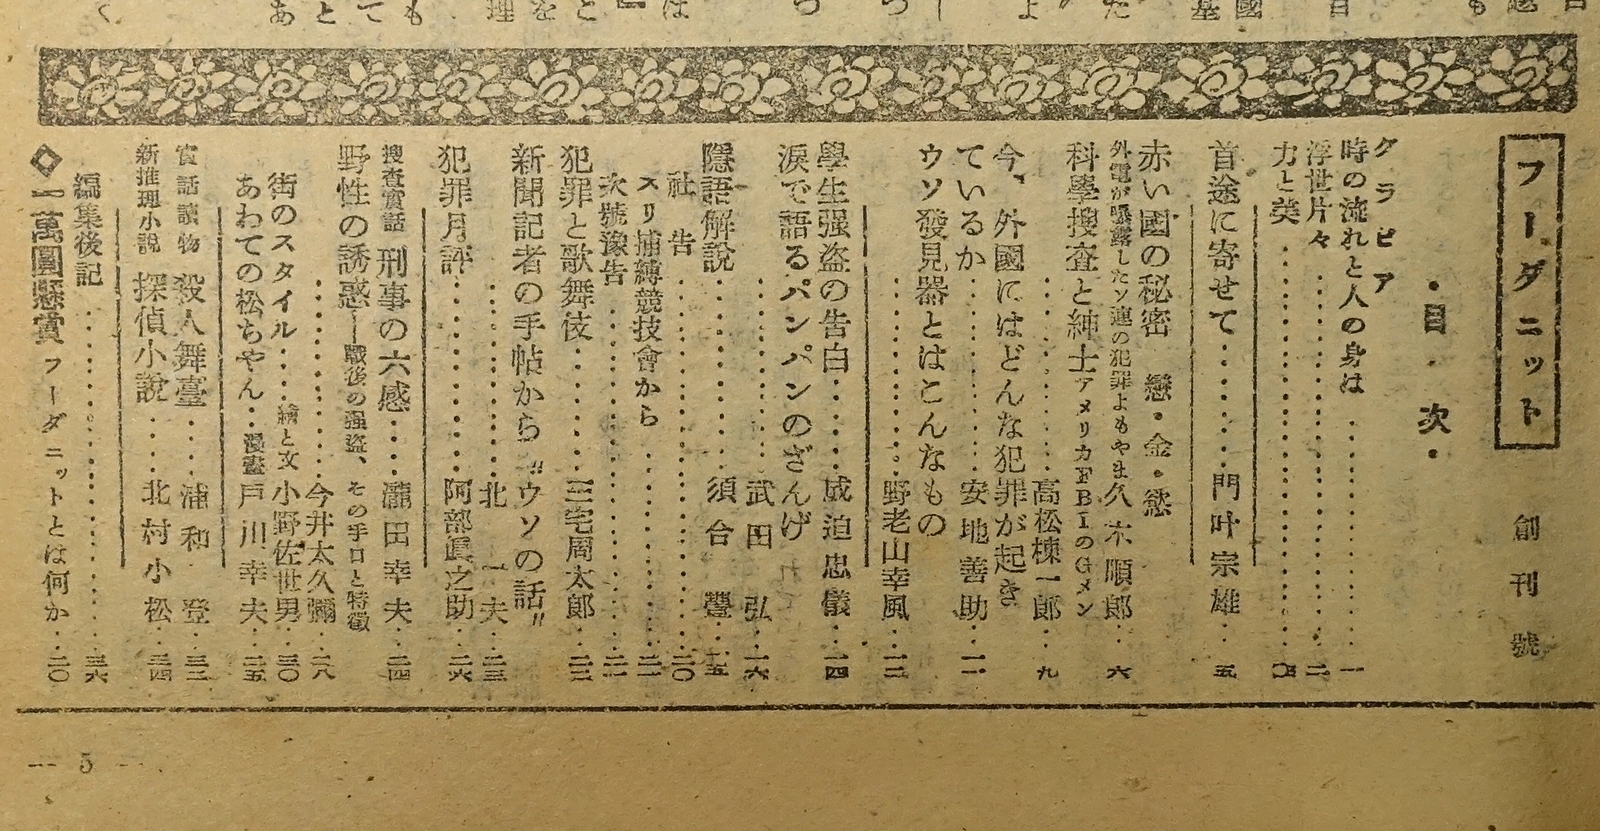 フーダニット
創刊號
・目次・
グラビア
時の流れと人の身は……一
浮世片々……二
力と美……
首途に寄せて……門叶宗雄……五
赤い國の秘密 戀・金・慾
外電が曝露したソ連の犯罪よもやま 久木順郎……六
科學捜査と紳士 アメリカFBIのGメン
……高松棟一郎……九
今、外國にはどんな犯罪が起き
ているか……安地善助……一一
ウソ發見器とはこんなもの
……野老山幸風……一二
學生强盗の告白……威迫忠儀……一四
涙で語るパンパンのざんげ
……武田弘……一六
隱語解説……須合豐……一五
社告……二〇
スリ捕縛競技會から……二一
次號豫告……二一
犯罪と歌舞伎……三宅周太郎……二二
新聞記者の手帖から〝ウソの話〟
……北一夫……二三
犯罪月評……阿部眞之助……二六
捜査實話 刑事の六感……瀧田幸夫……二四
野性の誘惑―戰後の强盗、その手口と特徴
……今井太久彌……二八
街のスタイル……繪と文 小野佐世男……三〇
あわての松ちやん……漫畫 戸川幸夫……二五
實話讀物 殺人舞臺……浦和登……三二
新推理小説 探偵小説……北村小松……三四
編集後記……三六
◇一萬圓懸賞 フーダニットとは何か……二〇
— 5 —